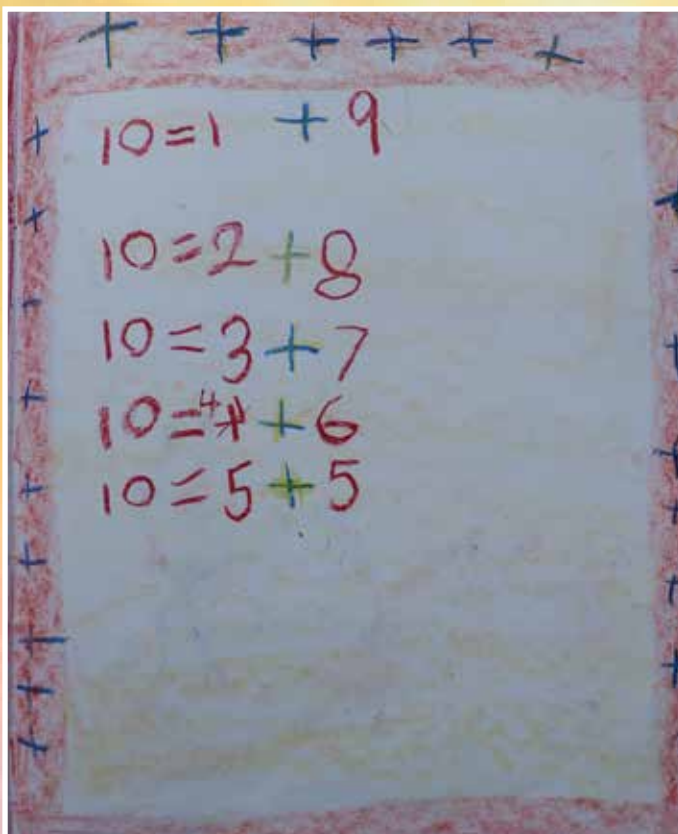 10=1 + 9
10=2 + 8
10=3+7
10=4+6
10=5+5